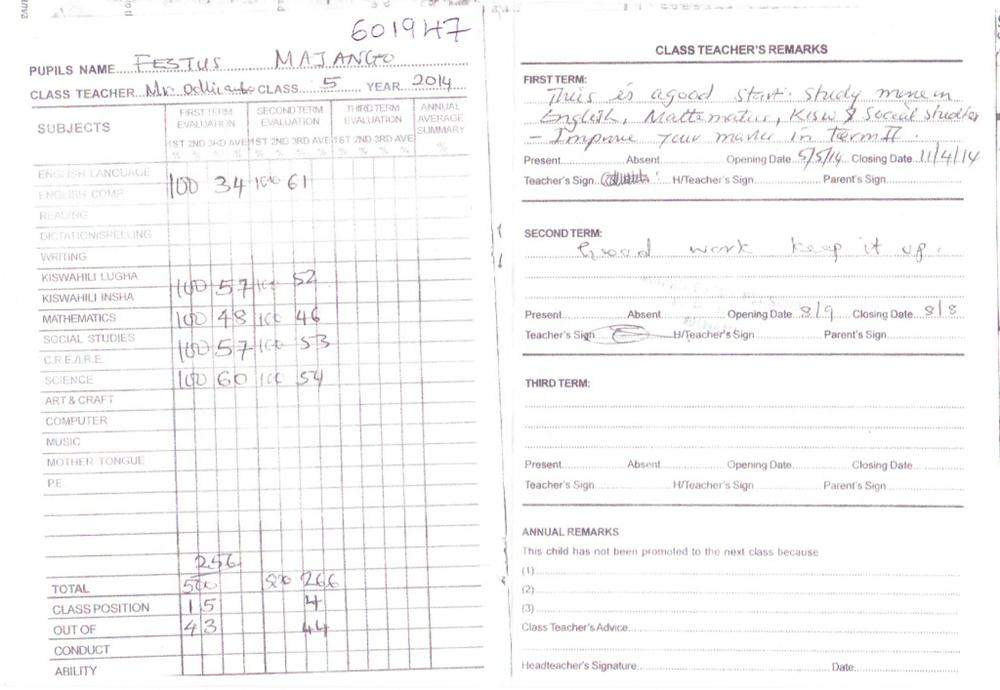 601947
PUPILS NAME FESTUS MAJANGO
CLASS TEACHER Mr. CLASS 5 YEAR 2014
SUBJECTS
FIRST TERM EVALUATION SECOND TERM EVALUATION THIRD TERM EVALUATION ANNUAL AVERAGE SUMMARY
1ST 2ND 3RD AVE 1ST 2ND 3RD AVE 1ST 2ND 3RD AVE
% % % % % % % % % %
ENGLISH LANGUAGE
100 34 100 61
ENGLISH COMP
READING
DICTATION/SPELLING
WRITING
KISWAHILI LUGHA
100 57 100 52
KISWAHILI INSHA
MATHEMATICS 100 48 100 46
SOCIAL STUDIES
100 57 100 53
C.R.E/I.R.E.
SCIENCE 100 60 100 54
ART & CRAFT
COMPUTER
MUSIC
MOTHER TONGUE
PE
256
TOTAL 500 266
CLASS POSITION 15 4
OUT OF 43 44
CONDUCT
ABILITY
CLASS TEACHER'S REMARKS
FIRST TERM:
This is a good start. Study more in
English, Mathematics, Kisw & Social studies
- Improve your marks in term II.
Present Absent Opening Date 5/5/14 Closing Date 11/4/14
Teacher's Sign H/Teacher's Sign Parent's Sign
SECOND TERM:
Good work keep it up.
Present Absent Opening Date 8/9 Closing Date 8/8
Teacher's Sign H/Teacher's Sign Parent's Sign
THIRD TERM:
Present Absent Opening Date Closing Date
Teacher's Sign H/Teacher's Sign Parent's Sign
ANNUAL REMARKS
This child has not been promoted to the next class because
(1)
(2)
(3)
Class Teacher's Advice
Headteacher's Signature Date